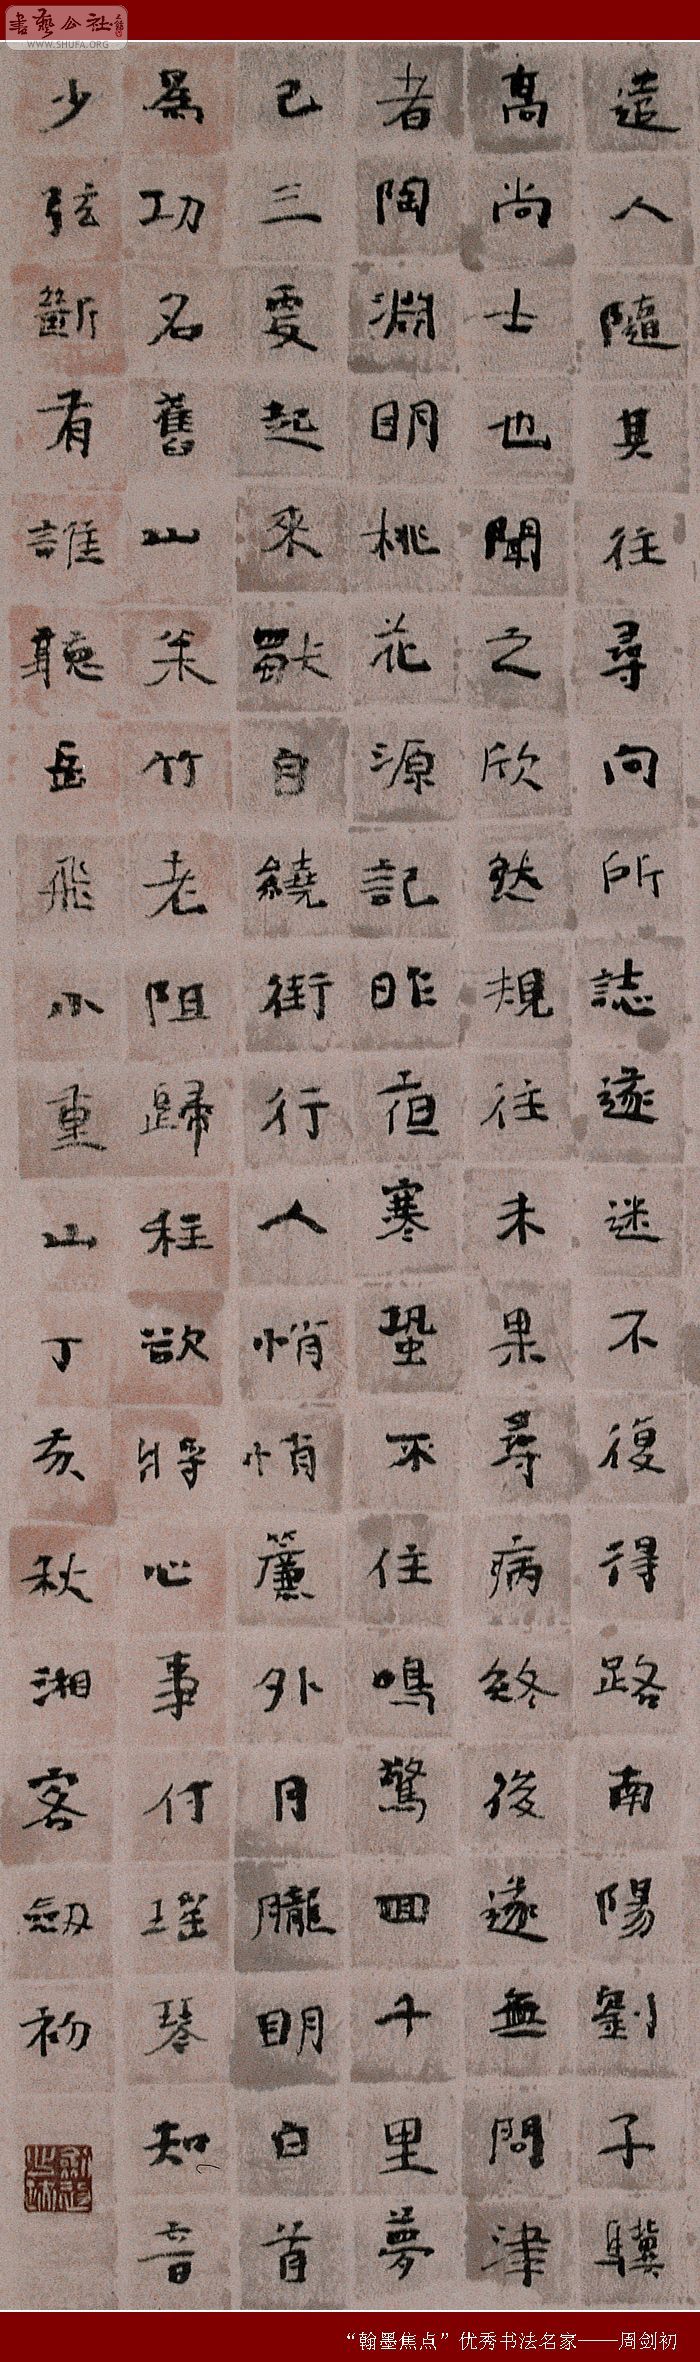 書藝公社
WWW.SHUFA.ORG
遣人隨其往尋向所誌遂迷不復得路南陽劉子驥
高尚士也聞之欣然規往未果尋病終後遂無問津
者陶淵明桃花源記昨夜寒蛩不住鳴驚回千里夢
已三更起來獨自繞街行人悄悄簾外月朧明白首
爲功名舊山松竹老阻歸程欲將心事付瑤琴知音
少弦斷有誰聽岳飛小重山丁亥秋湘客劍初
“翰墨焦点”优秀书法名家——周剑初